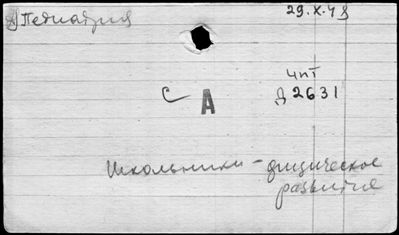 Педиатрия
29.X.48
с А
чпт
д 2631
Школьники - физическое
развитие